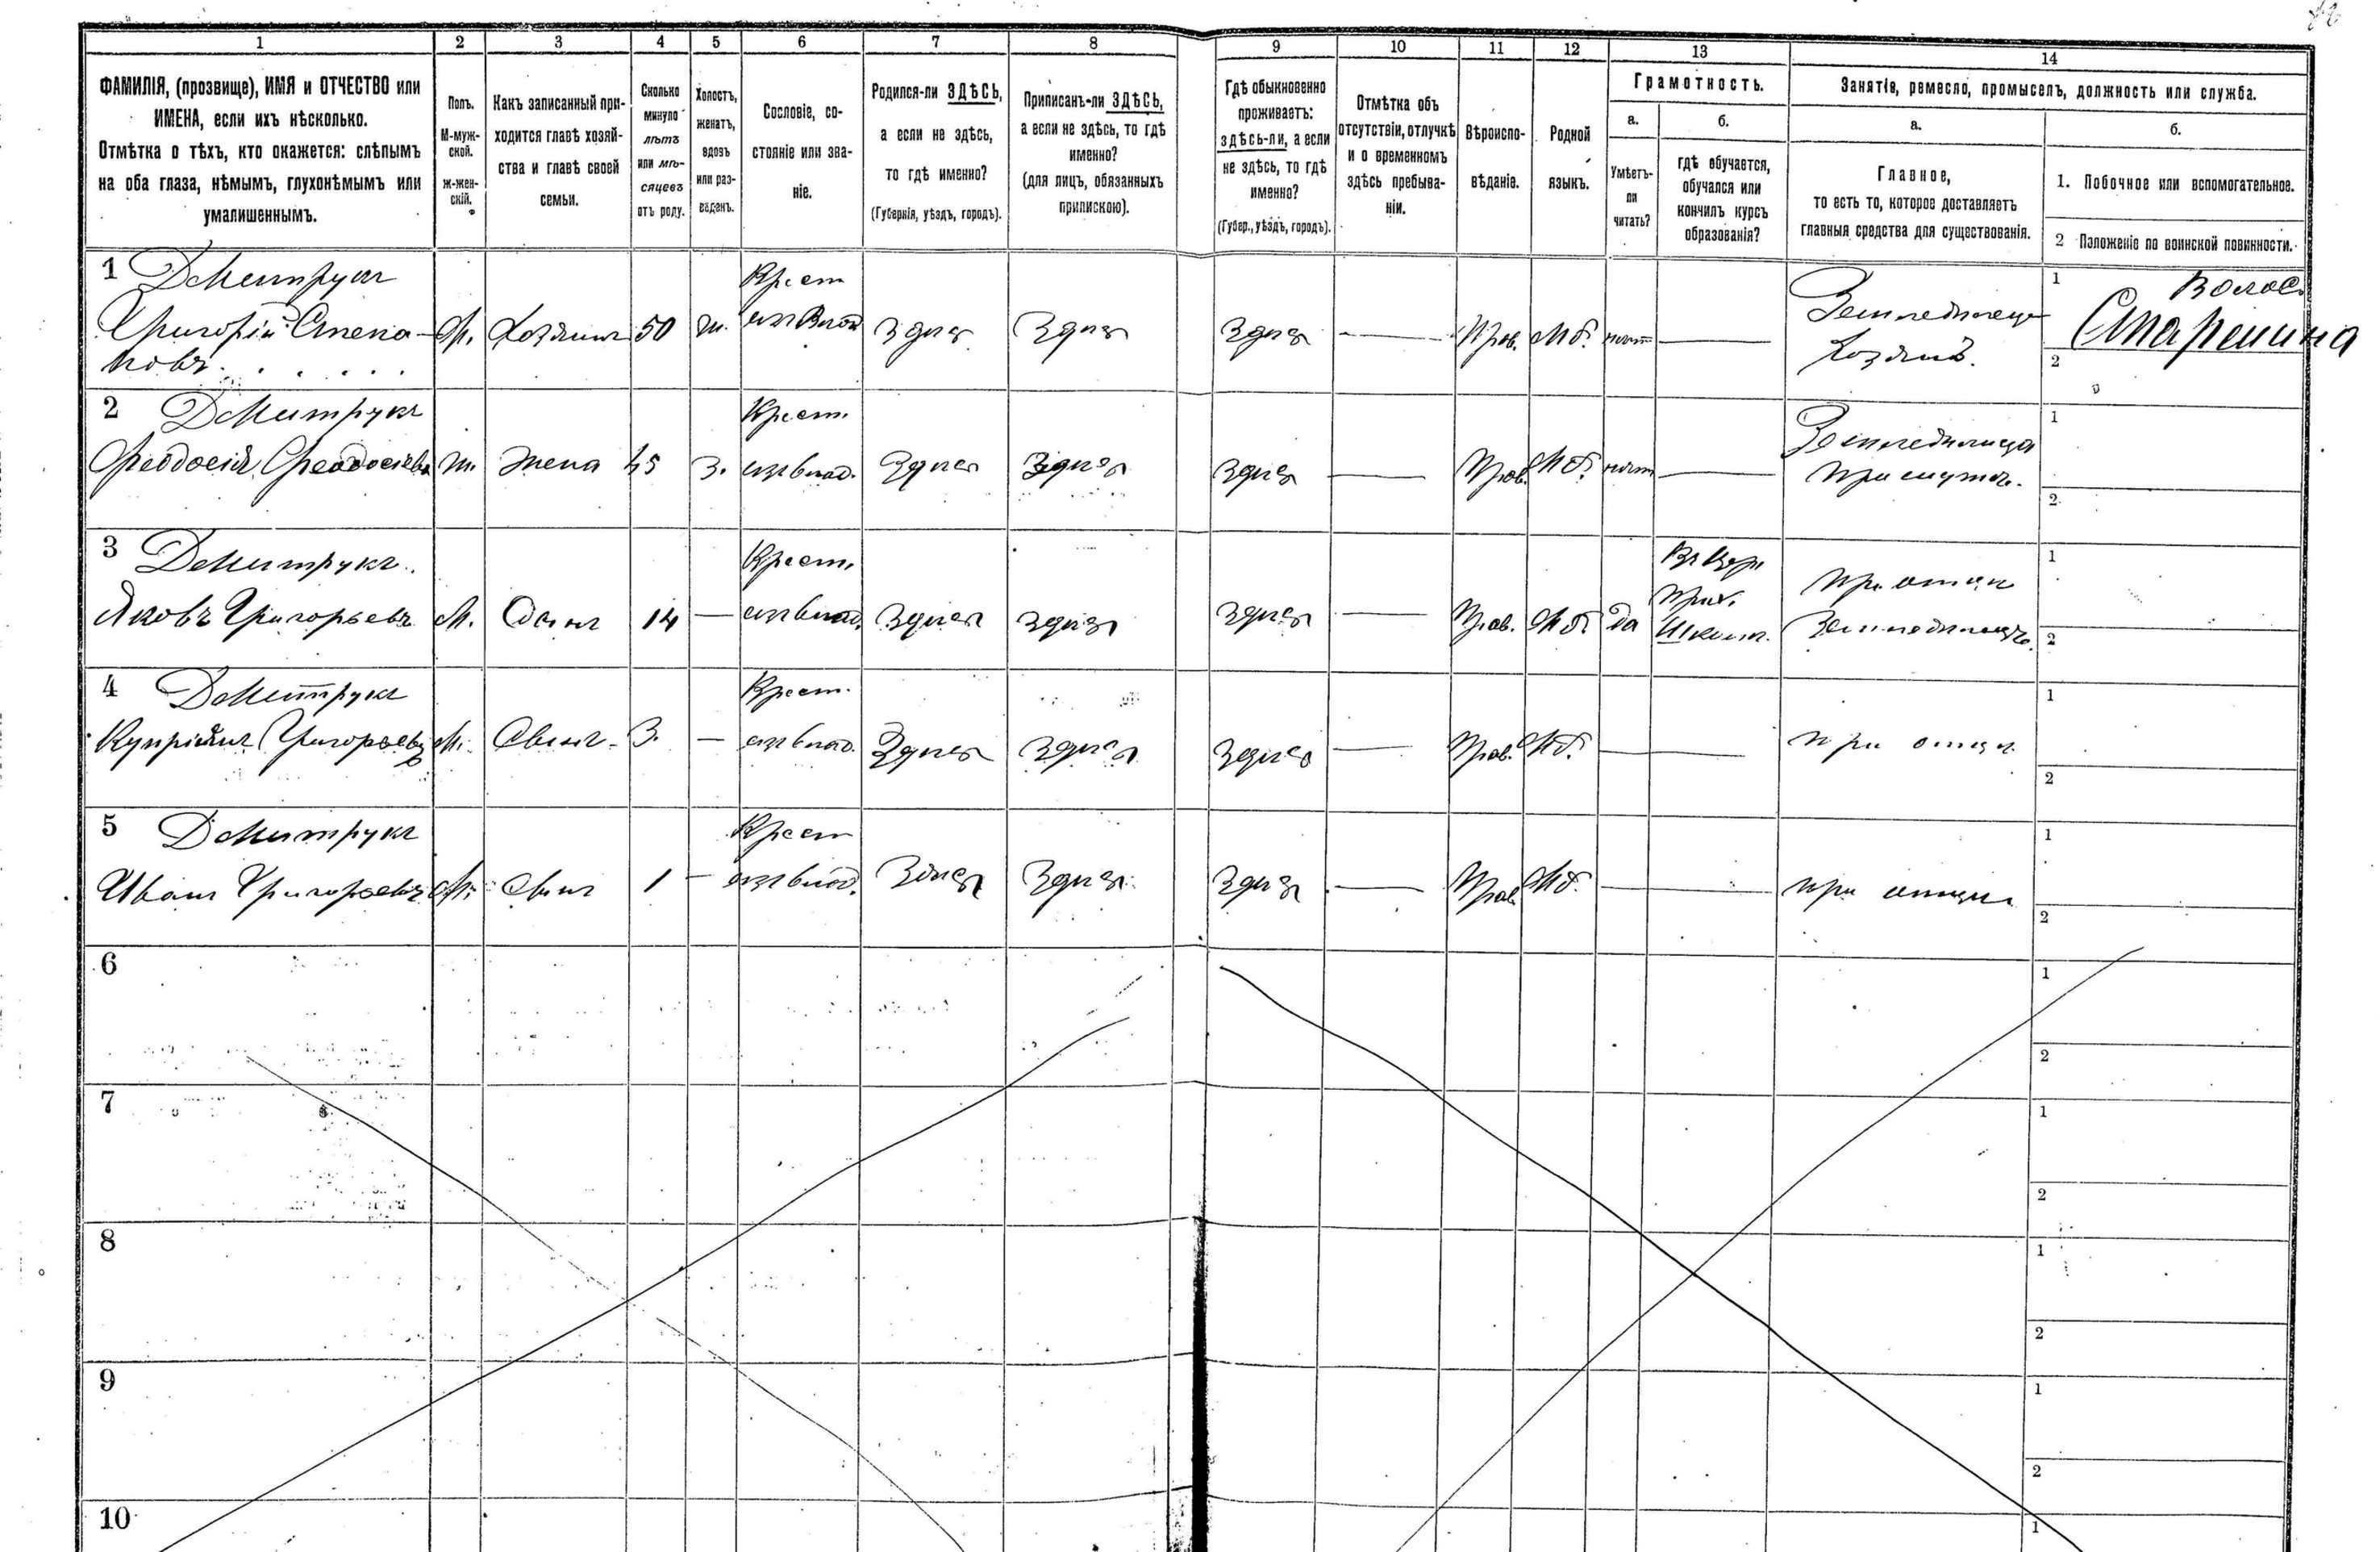 1 2 3 4 5 6 7 8 9 10 11 12 13 14
ФАМИЛІЯ, (прозвище), ИМЯ и ОТЧЕСТВО или
ИМЕНА, если ихъ нѣсколько.
Отмѣтка о тѣхъ, кто окажется: слѣпымъ
на оба глаза, нѣмымъ, глухонѣмымъ или
умалишеннымъ.
Полъ.
М-муж-
ской.
ж-жен-
скій.
Какъ записанный при-
ходится главѣ хозяй-
ства и главѣ своей
семьи.
Сколько
минуло
лѣтъ
или мѣ-
сяцевъ
отъ роду.
Холостъ,
женатъ,
вдовъ
или раз-
веденъ.
Сословіе, со-
стояніе или зва-
ніе.
Родился-ли ЗДѢСЬ,
а если не здѣсь,
то гдѣ именно?
(Губернія, уѣздъ, городъ).
Приписанъ-ли ЗДѢСЬ,
а если не здѣсь, то гдѣ
именно?
(для лицъ, обязанныхъ
припискою).
Гдѣ обыкновенно
проживаетъ:
здѣсь-ли, а если
не здѣсь, то гдѣ
именно?
(Губер., уѣздъ, городъ).
Отмѣтка объ
отсутствіи, отлучкѣ
и о временномъ
здѣсь пребыва-
ніи.
Вѣроиспо-
вѣданіе.
Родной
языкъ.
Грамотность.
а.
Умѣетъ-
ли
читать?
б.
гдѣ обучается,
обучался или
кончилъ курсъ
образованія?
Занятіе, ремесло, промыселъ, должность или служба.
а.
Главное,
то есть то, которое доставляетъ
главныя средства для существованія.
б.
1. Побочное или вспомогательное.
2 Положеніе по воинской повинности.
1 Дмитрукъ Крест 1 Волос.
Григорій Степа- М. Хозяинъ 50 ж. здѣсь здѣсь здѣсь — Прав. Мб. нѣтъ — Земледѣлецъ Старшина
новъ Хозяинъ. 2
2 Дмитрукъ Крест. 1
Феодосія Феодосіева ж. жена 45 з. здѣсь здѣсь здѣсь — Прав. Мб. нѣтъ — Земледѣлица
при мужѣ. 2
3 Дмитрукъ Крест. Въ Цер. 1
Яковъ Григорьевъ М. Сынъ 14 — здѣсь здѣсь здѣсь — Прав. Мб. да Прих. при отцѣ
Школѣ. Земледѣлецъ. 2
4 Дмитрукъ Крест. 1
Купріянъ Григорьевъ М. Сынъ 3. — здѣсь здѣсь здѣсь — Прав. Мб. — при отцѣ 2
5 Дмитрукъ Крест 1
Иванъ Григорьевъ М. сынъ 1 — здѣсь здѣсь здѣсь — Прав. Мб. — при отцѣ 2
6 1
2
7 1
2
8 1
2
9 1
2
10 1